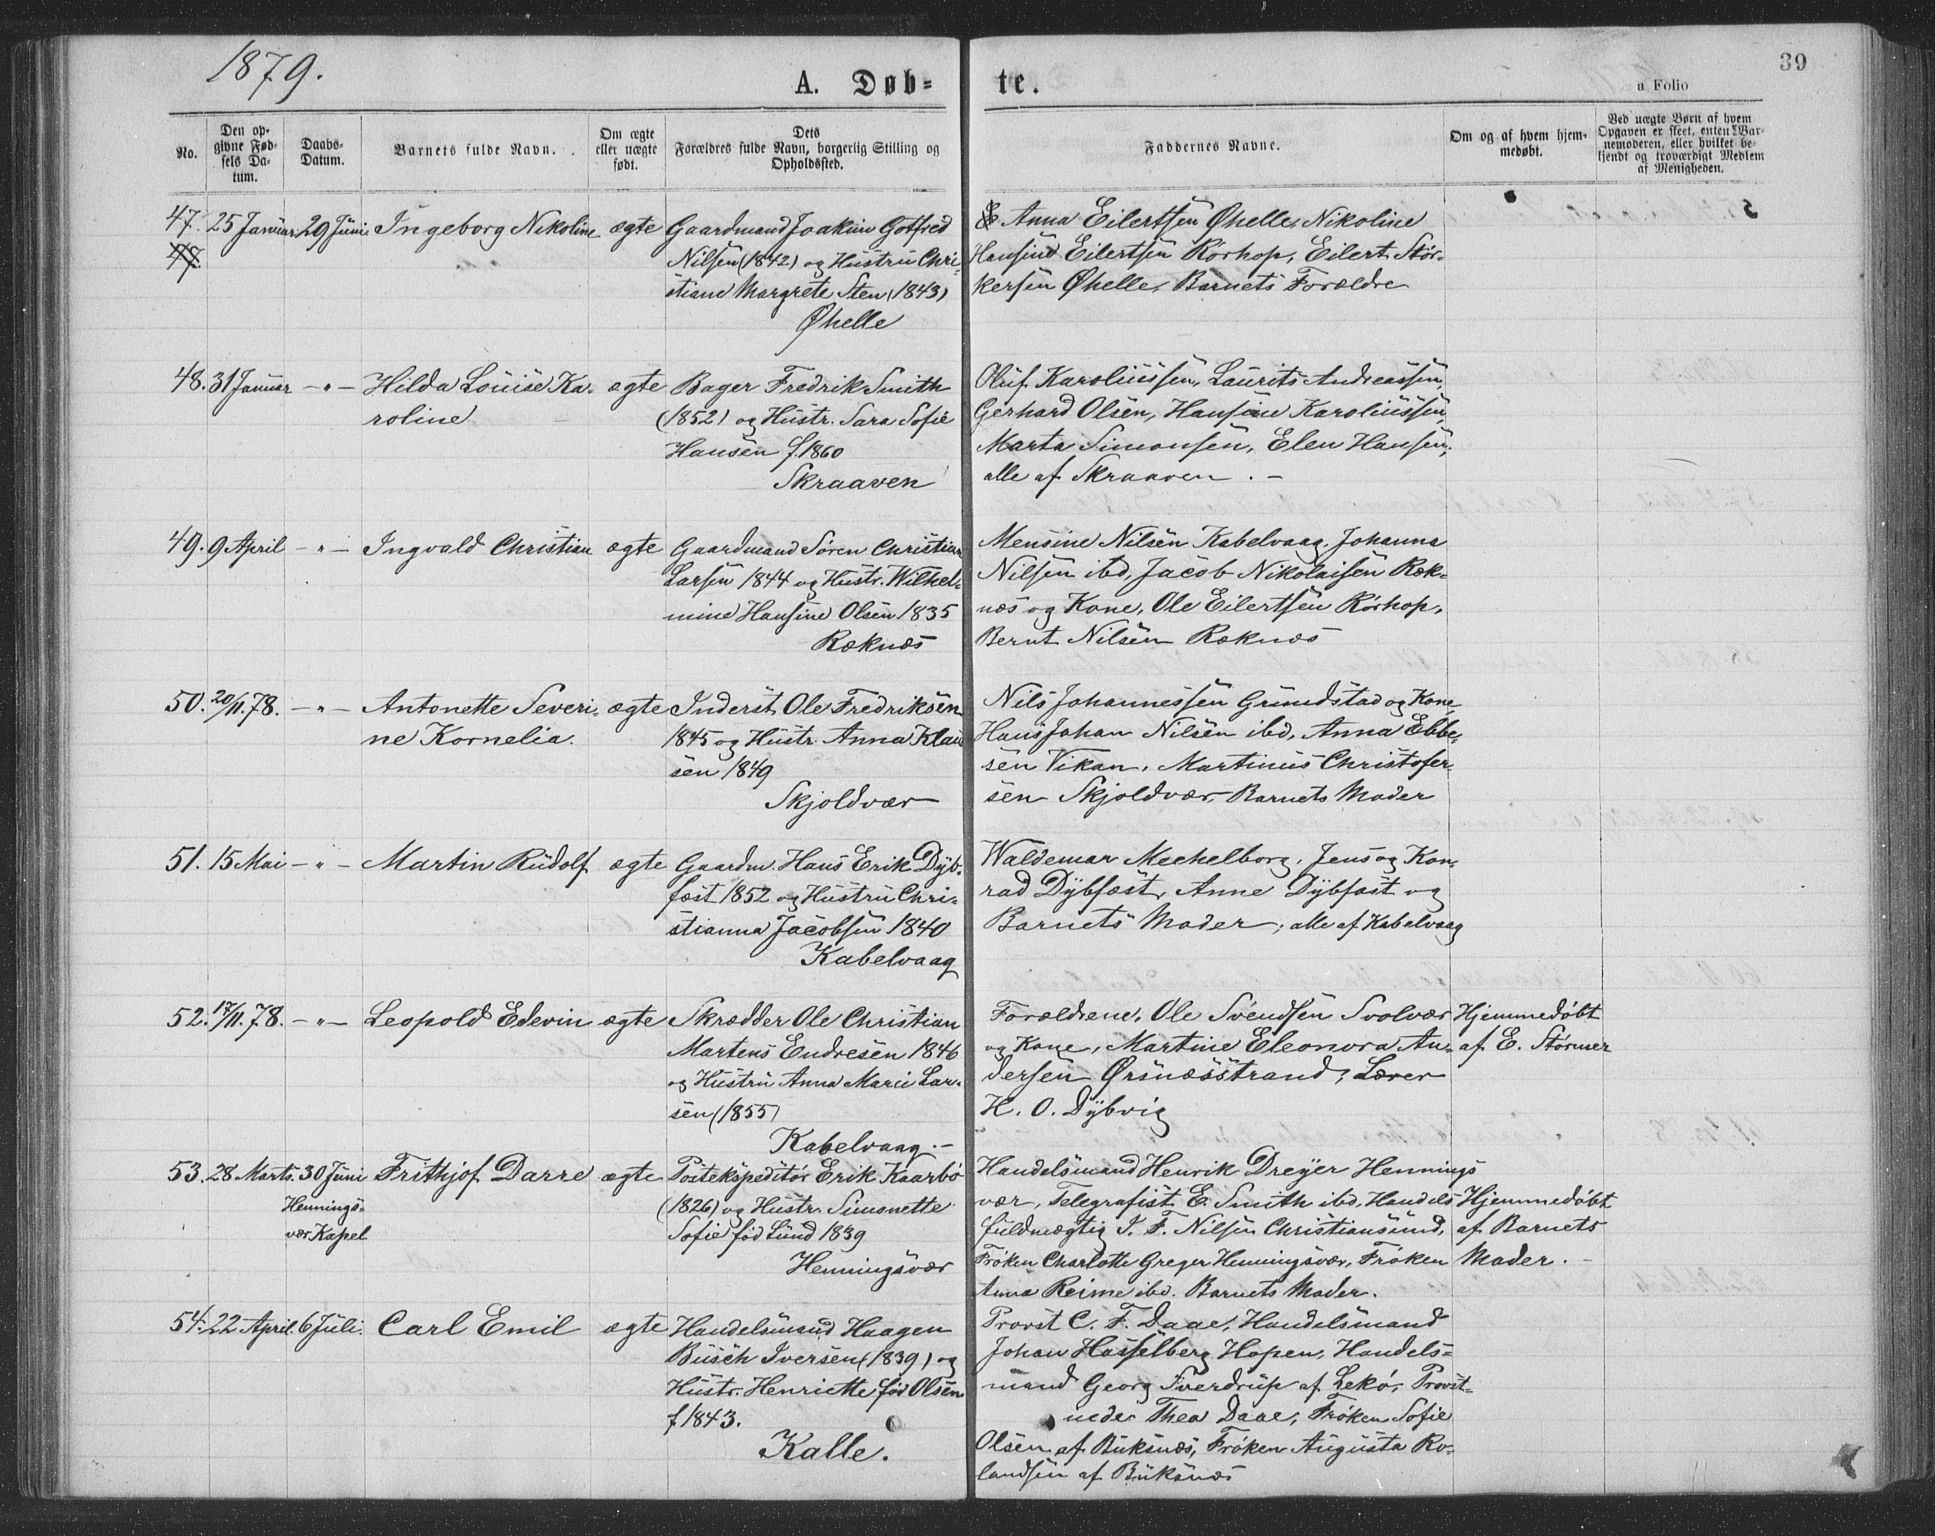 1879.
39
A. Døb=
te.
a Folio
No.
Den op-
givne Fød-
sels Da-
tum.
Daabs-
Datum.
Barnets fulde Navn.
Om ægte
eller uægte
født.
Dets
Forældres fulde Navn, borgerlig Stilling og
Opholdssted.
Faddernes Navne.
Om og af hvem hjem-
medøbt.
Ved uægte Børn af hvem
Opgaven er skeet, enten Bar-
nemoderen, eller hvilket be-
kjendt og troværdigt Medlem
af Menigheden.
47. 25 Januar 29 Juni Ingeborg Nikoline ægte Gaardmand Joakim Gotfred
Nilsen (1842) og Hustru Chri-
stiane Margrete Sten (1843)
Øhelle
Anna Eilertsen Øhelle, Nikoline
Hansine Eilertsen Rørhop, Eilert Stør-
kersen Øhelle, Barnets Forældre
5
48. 31 Januar -"- Hilda Louise Ka-
roline
ægte Bager Fredrik Smith
(1852) og Hustr. Sara Sofie
Hansen f. 1860
Skraaven
Oluf Karoliussen, Laurits Andreassen,
Gerhard Olsen, Hansine Karoliussen,
Marta Simonsen, Elen Hansen,
alle af Skraaven. -
49. 9 April -"- Ingvald Christian ægte Gaardmand Søren Christian
Larsen 1844 og Hustr. Wilhel-
mine Hansine Olsen 1835
Røknæs
Mensine Nilsen Kabelvaag. Johanna
Nilsen ibd, Jacob Nikolaisen Røk-
næs og Kone, Ole Eilertsen Rørhop,
Bernt Nilsen Røknæs
50. 20/11.78. -"- Antonette Severi-
ne Kornelia.
ægte Inderst Ole Fredriksen
1845 og Hustr. Anna Klau
sen 1849
Skjoldvær
Nils Johannessen Grundstad og Kone,
Hans Johan Nilsen ibd, Anna Ebbe-
sen Vikan, Martinus Christofer-
sen Skjoldvær, Barnets Moder
51. 15 Mai -"- Martin Rudolf ægte Gaardm. Hans Erik Dyb-
fæst 1852 og Hustru Chri-
stianna Jacobsen 1840
Kabelvaag
Waldemar Mechelborg, Jens og Kon-
rad Dybfæst, Anne Dybfæst og
Barnets Moder, alle af Kabelvaag
52. 17/11.78. -"- Leopold Edevin ægte Skrædder Ole Christian
Martens Endresen 1846
og Hustru Anna Marie Lar-
sen (1855)
Kabelvaag. -
Forældrene, Ole Svendsen Svolvær
og Kone, Martine Eleonora An-
dersen Ørsnæsstrand, Lærer
H. O. Dybvig
Hjemmedøbt
af E. Størmer
53. 28 Marts. 30 Juni
Hennings-
vær Kapel
Frithjof Darre ægte Postekspeditør Erik Kaarbø
(1826) og Hustr. Simonette
Sofie fød Lund 1839
Henningsvær
Handelsmand Henrik Dreyer Hennings
vær, Telegrafist E. Smith ibd, Handels
fuldmægtig J. F. Nilsen Christiansund,
Frøken Charlotte Greger Henningsvær, Frøken
Anna Reime ibd. Barnets Moder.
Hjemmedøbt
af Barnets
Moder. -
54. 22 April. 6 Juli. Carl Emil ægte Handelsmand Haagen
Busch Iversen (1839) og
Hustr. Henriette fød Olsen
f 1843.
Kalle.
Provst C. F. Daae, Handelsmand
Johan Hasselberg Hopen, Handels-
mand Georg Sverdrup af Lekø, Provst-
inde Thea Daae, Frøken Sofie
Olsen af Buksnæs, Frøken Augusta Ro-
landsen af Buksnæs